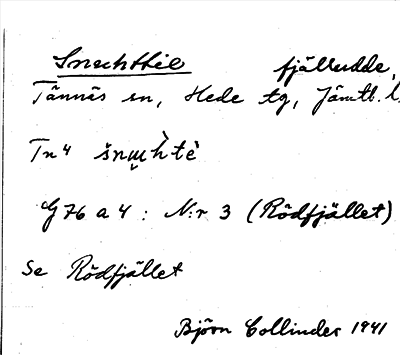 Snuchttie fjälludde,
Tännäs sn, Hede tg, Jämtl. l.
Tn4 šnɯ̮h̀tè
G 76 a 4 : N:r 3 (Rödfjället)
Se Rödfjället
Björn Collinder 1941